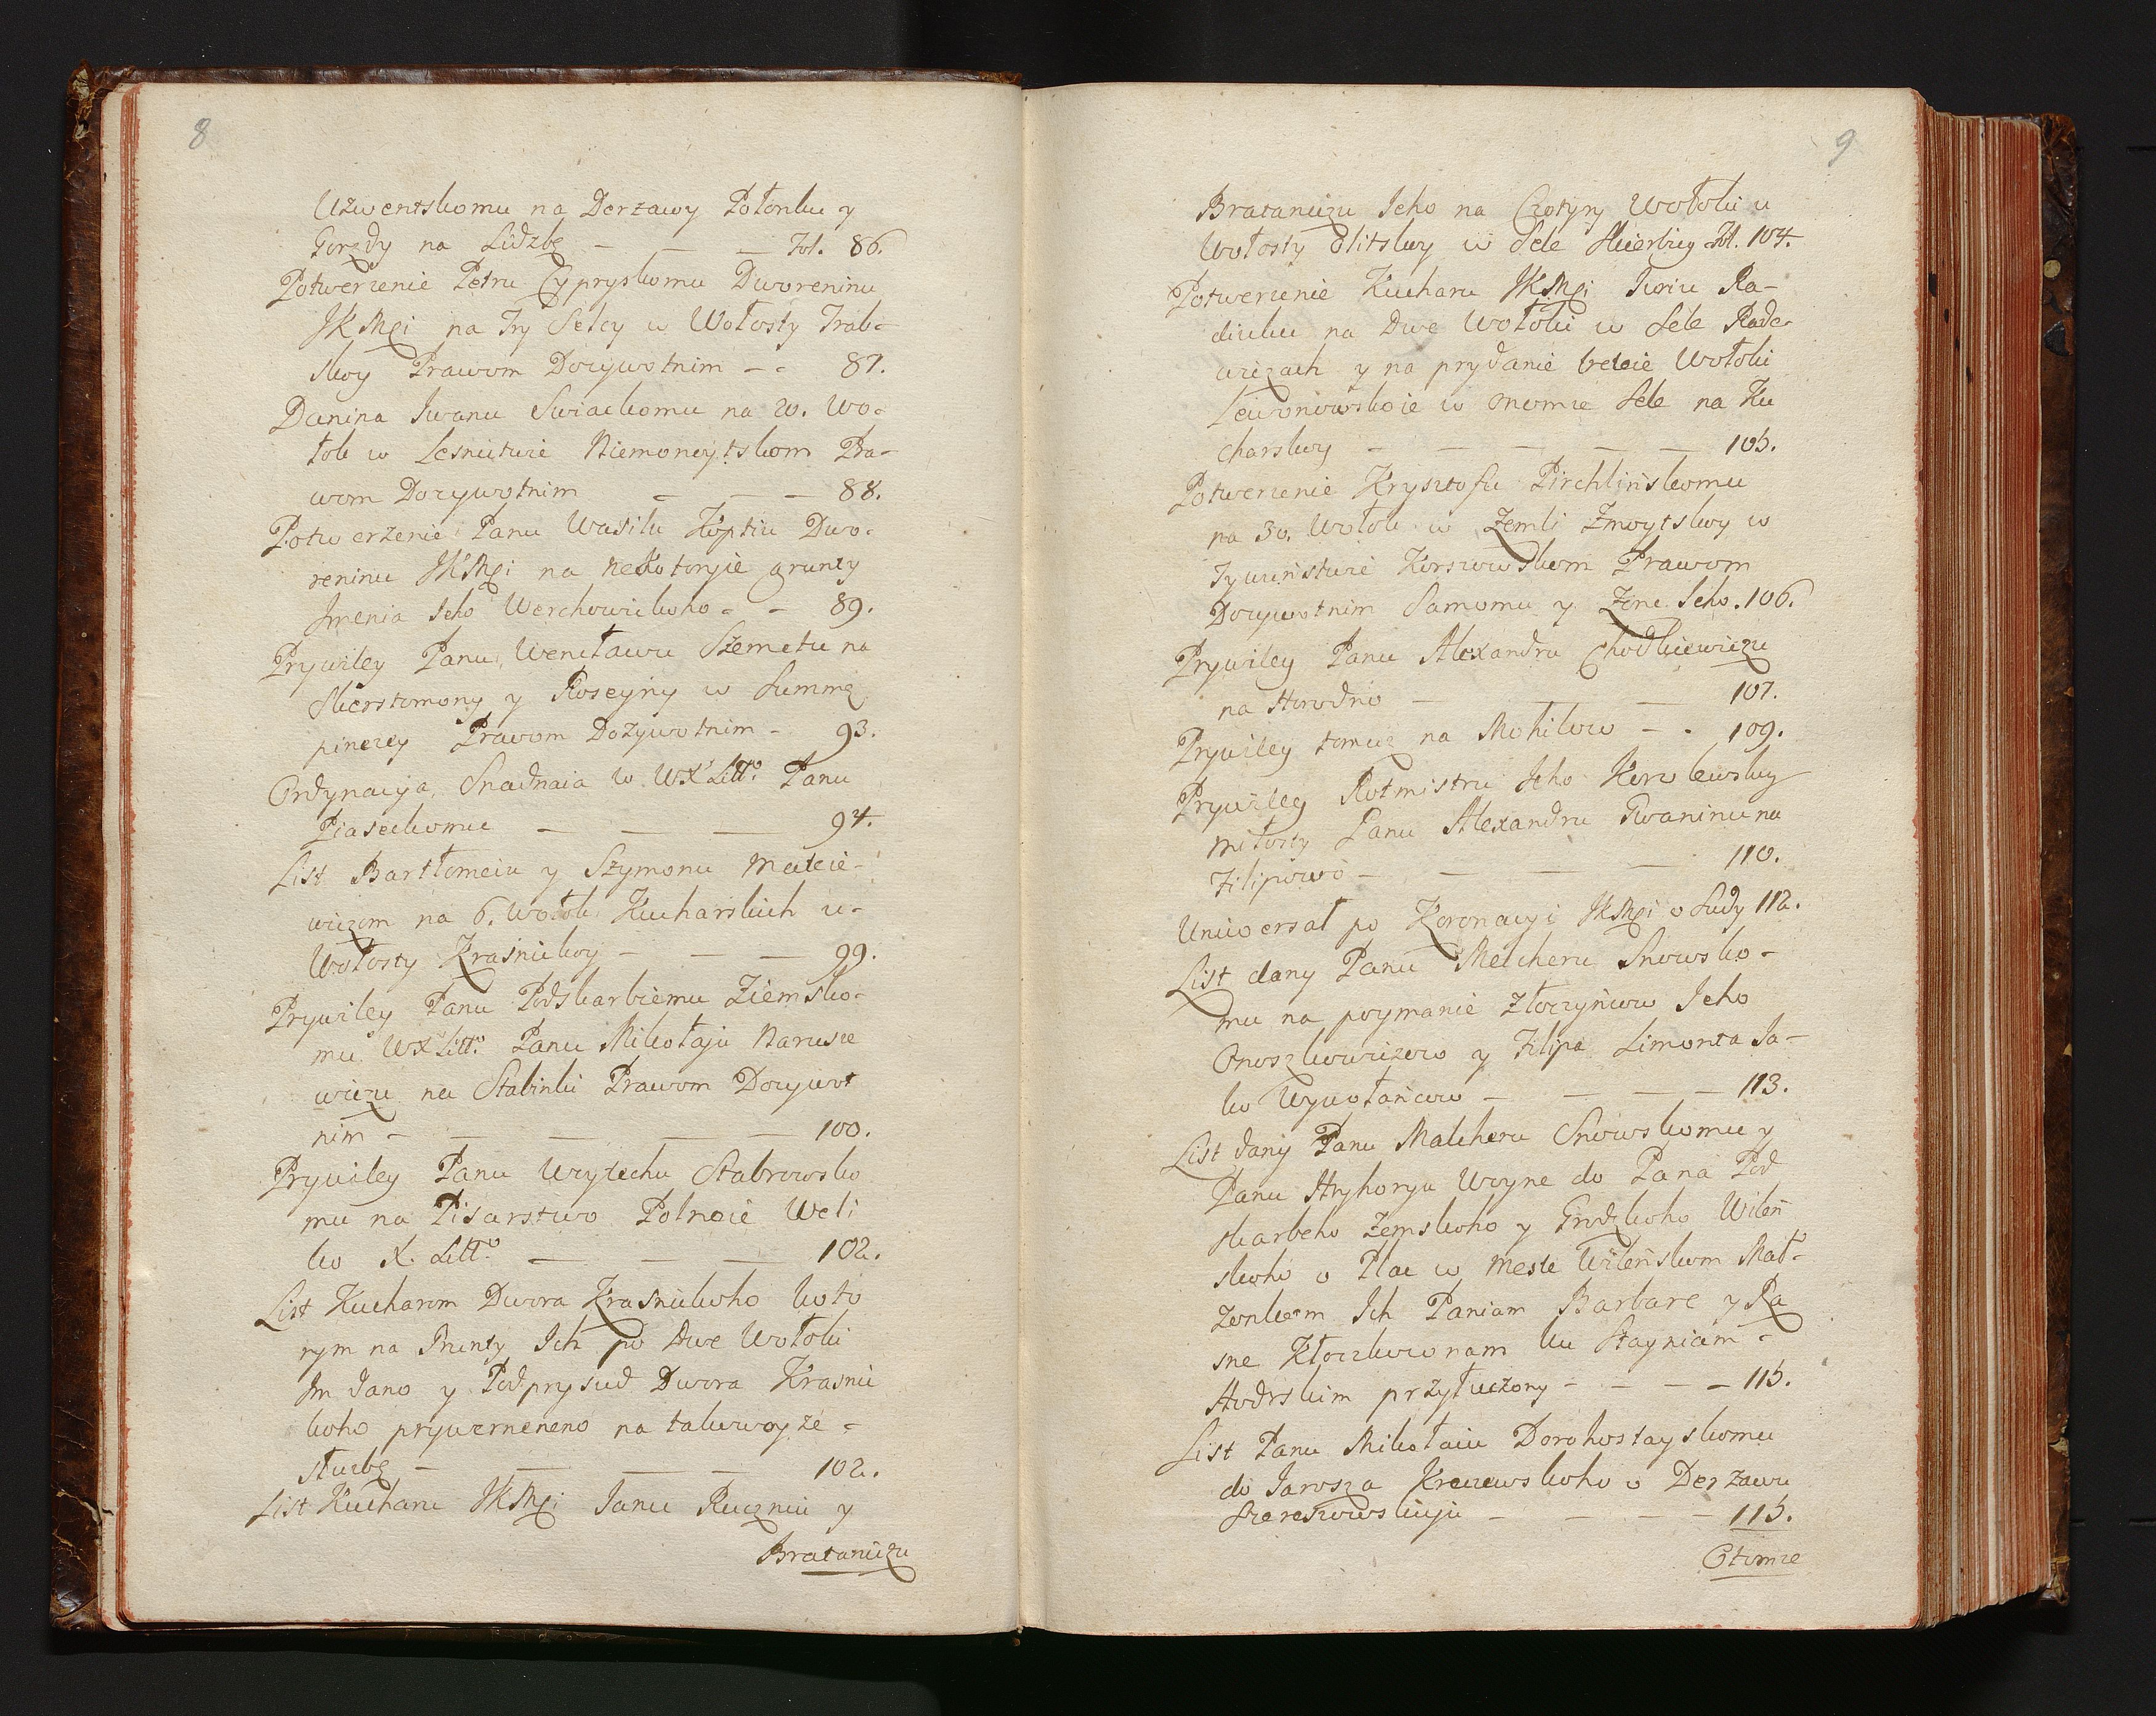 8
Użwentskomu na Derżawy Połonku y
Gorżdy na Lidzbę — — — Fol. 86.
Potwerżenie Petru Cypryskomu Dworeninu
JKMći na Try Selcy w Wołosty Trab-
skoy Prawom Dożywotnim - - 87.
Danina Iwanu Swiackomu na 20. Wo-
łok w Lesnictwie Niemonoytskom Pra-
wom Dożywotnim — — — 88.
Potwerżenie Panu Wasilu Koptiu Dwo-
reninu JKMći na nekotoryie grunty
Jmenia Jeho Werchowickoho - - 89.
Prywiley Panu Wencławu Szemetu na
Skerstomony y Roseyny w Summę
pinezey Prawom Dożywotnim - 93.
Ordynacya Snadnaia w WX Litt.º Panu
Piaseckomu — — — 94.
List Bartłomeiu y Szymonu Matcie-
wiczom na 6. Wołok Kucharskich u-
Wołosty Krasnickoy — — — 99.
Prywiley Panu Podskarbiemu Ziemsko-
mu WX Litt.º Panu Mikołaju Narusze
wiczu na Stabinki Prawom Dożywot
nim — — — — — 100.
Prywiley Panu Woytechu Stabrowsko
mu na Pisarstwo Polnoie Weli
ko X. Litt.º — — — 102.
List Kucharom Dwora Krasnickoho koto
rym na Hrunty Ich po Dwe Wołoki
Im dano y Pod prysud Dwora Krasnic
koho prywerneneno na takuwoyże -
służbę — — — — 102.
List Kucharu JKMći Janu Ruczniu y
Brataniczu
9
Brataniczu Jeho na Czotyry Wołoki u
Wołosty Olitskoy w Sele Skierbiey Fol. 104.
Potwerżenie Kucharu JKMći Juriu Ra-
diuku na Dwe Wołoki w Sele Rade-
wiczach y na prydanie tretcie Wołoki
Lewonowskoie w onomże Sele na Ku
charskoy — — — — — 105.
Potwerżenie Krysztofu Pirchlińskomu
na 30. Wołok w Zemli Żmoytskoy w
Tywuństwie Korszowskom Prawom
Dożywotnim Samomu y Żone Jeho. 106.
Prywiley Panu Alexandru Chodkiewiczu
na Horodno — — — 107.
Prywiley tomuż na Mohilow — . 109.
Prywiley Rotmistru Jeho Korolewskoy
miłosty Panu Alexandru Gwaninu na
Filipowo — — — — 110.
Uniwersał po Koronacyi JKMći o Sudy 112.
List dany Panu Melcheru Snowsko-
mu na poymanie złoczyńcow Jeho
Onoszkowiczow y Filipa Limonta Ja-
ko Wywołańcow — — — — 113.
List dany Panu Malcheru Snowskomu y
Panu Hryhoryu Woyne do Pana Pod
skarbeho Zemskoho y Grodzkoho Wileń
skoho o Plac w Meste Wileńskom Mał-
żonkom Ich Paniam Barbare y Ra
ine Kłoczkow nam ku Stayniam -
Hodrskim przyłuczony — — — — 115.
List Panu Mikołaiu Dorohostayskomu
do Jarosza Kraiewskoho o Derżawu
Szereszowskuju — — — — 115.
Otomże